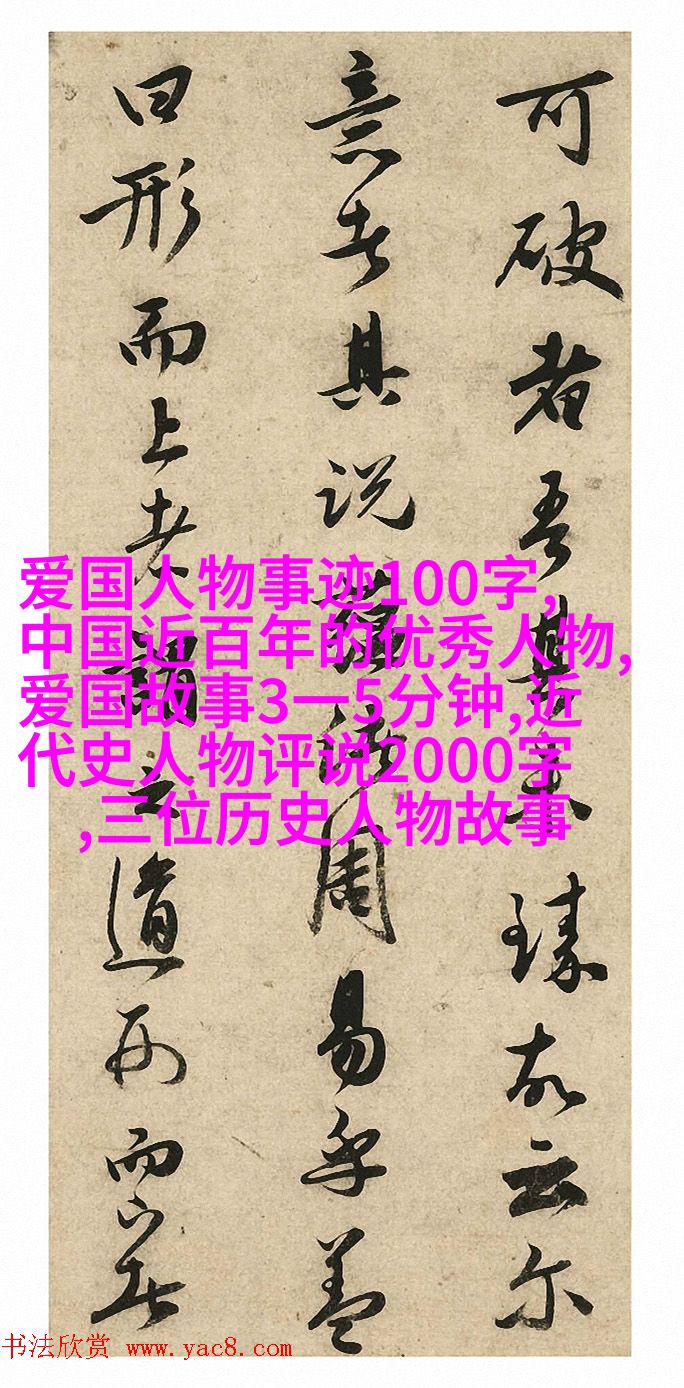 可破者吾其未臻故云尔
意者其说犹话周易乎盖
曰形而上者谓之道形而下者
爱国人物事迹100字,
中国近百年的优秀人物,
爱国故事3一5分钟,近
代史人物评说2000字
,三位历史人物故事
书法欣赏 www.yac8.com